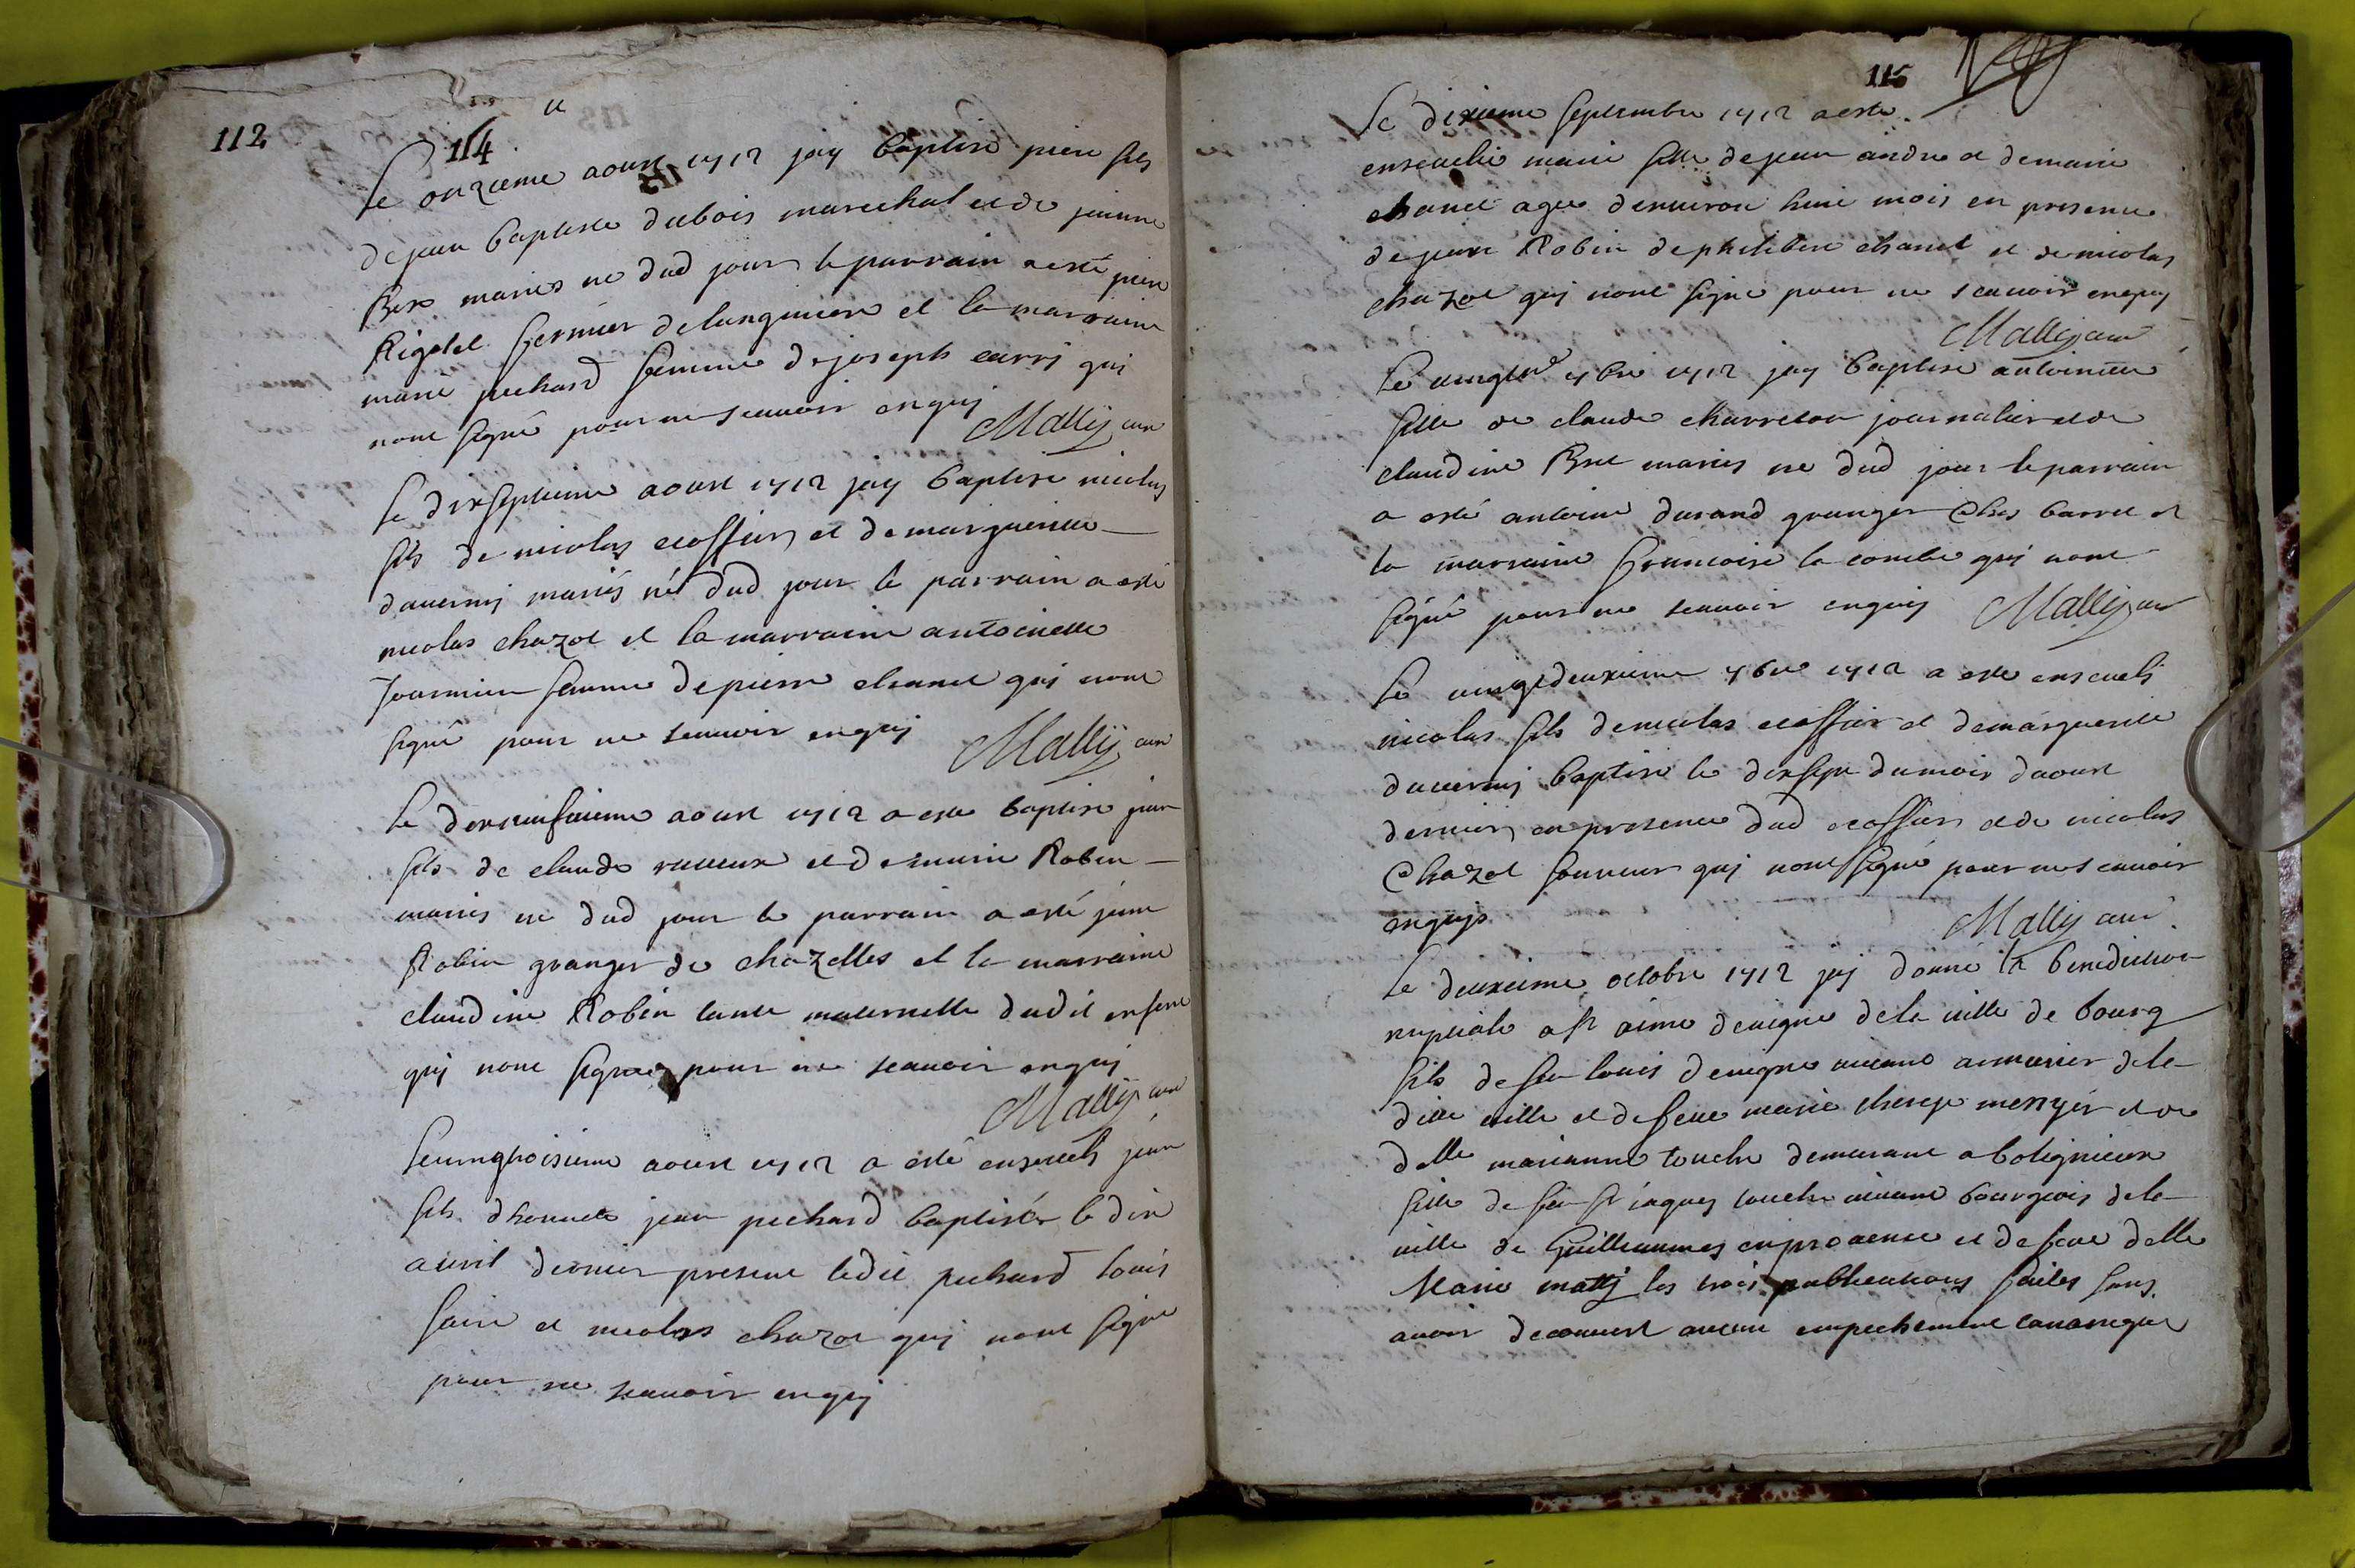 112
114
Le onzieme aoust 1712 jay baptisé piere fils
de jean baptiste dubois marechal et de jeanne
mariés né dud jour le parrain a esté piere
Rigolet fermier et la marraine
marie pechard femme de joseph carry qui
nont signé pour ne scauoir enquis
Mallÿ curé
le dixseptieme aoust 1712 jay baptisé nicolas
fils de nicolas ecoffier et de marguerite
dauernis mariés né dud jour le parrain a esté
nicolas chazot et la marraine antoinette
fournier femme de pierre chanel qui nont
signé pour ne scauoir enquis
Mallÿ curé
le dixneufuieme aoust 1712 a esté baptisé jean
fils de claude et de marie Robin
mariés né dud jour le parrain a esté jean
Robin granger de chazelles et la marraine
claudine Robin tante maternelle dudit enfant
qui nont signé pour ne scauoir enquis
Mallÿ curé
le uingtroisieme aoust 1712 a esté enseueli jean
fils dhonnete jean pechard baptisé le dix
auril dernier present ledit pechard louis
faire et nicolas chazot qui nont signé
pour ne scauoir enquis
115
le dixieme septembre 1712 a esté
enseuelie marie fille de jean andre et de marie
chanel agée denuiron huit mois en presence
de jean Robin de philibert chanel et de nicolas
chazot qui nont signé pour ne scauoir enquis
Mallÿ curé
le 7bre 1712 jay baptisé antoinette
fille de claude charreton journalier et de
claudine mariés né dud jour le parrain
a esté antoine durand granger chés barret et
la marraine francoise la combe qui nont
signé pour ne scauoir enquis Mallÿ curé
le uingtdeuxieme 7bre 1712 a esté enseueli
nicolas fils de nicolas ecoffier et de marguerite
dauernis baptisé le dixsept du mois daoust
dernier en presence dud ecoffier et de nicolas
chazot sonneur qui nont signé pour ne scauoir
enquis
Mallÿ curé
le deuxieme octobre 1712 jay donné la benediction
nuptiale a sr aimé deuigne de la uille de bourg
fils de feu louis deuigne uiuant armurier de la
dite uille et de feue marie et de
delle marianne touche demeurant a boligneux
fille de feu sr jaques touche uiuant bourgeois de la
uille de Guilleaumes en prouence et de feue delle
Marie mallÿ les trois publications faites sans
auoir decouuert aucun empechement canonique